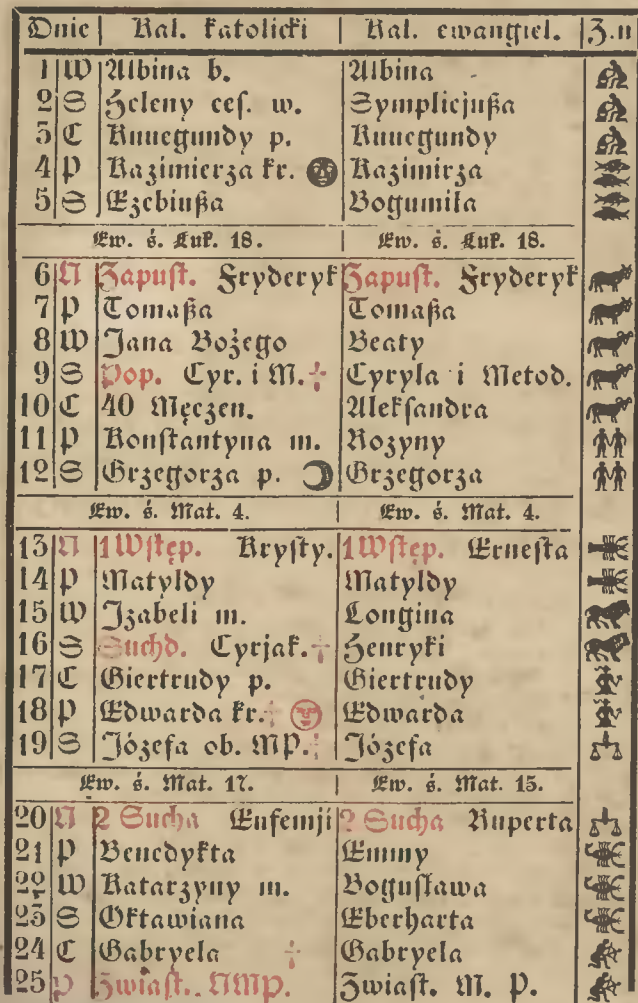 Dnie Kal. katolicki Kal. ewangiel. Z.n
1 W Albina b. Albina
2 S Heleny ces. w. Symplicjußa
3 C Kunegundy p. Kunegundy
4 P Kazimierza kr. Kazimirza
5 S Ezebiußa Bogumila
Ew. ś. Luk. 18. Ew. ś. Luk. 18.
6 N Zapust. Fryderyk Zapust. Fryderyk
7 P Tomaßa Tomaßa
8 W Jana Bożego Beaty
9 S Pop. Cyr. i M. † Cyryla i Metod.
10 C 40 Męczen. Aleksandra
11 P Konstantyna m. Rozyny
12 S Grzegorza p. Grzegorza
Ew. ś. Mat. 4. Ew. ś. Mat. 4.
13 N 1 Wstęp. Krysty. 1 Wstęp. Ernesta
14 P Matyldy Matyldy
15 W Izabeli m. Longina
16 S Suchd. Cyrjak. † Henryki
17 C Giertrudy p. Giertrudy
18 P Edwarda kr. † Edwarda
19 S Józefa ob. MP. † Józefa
Ew. ś. Mat. 17. Ew. ś. Mat. 15.
20 N 2 Sucha Eufemji 2 Sucha Ruperta
21 P Benedykta Emmy
22 W Katarzyny m. Bogusława
23 S Oktawiana Eberharta
24 C Gabryela † Gabryela
25 P Zwiast. NMP. Zwiast. M. P.